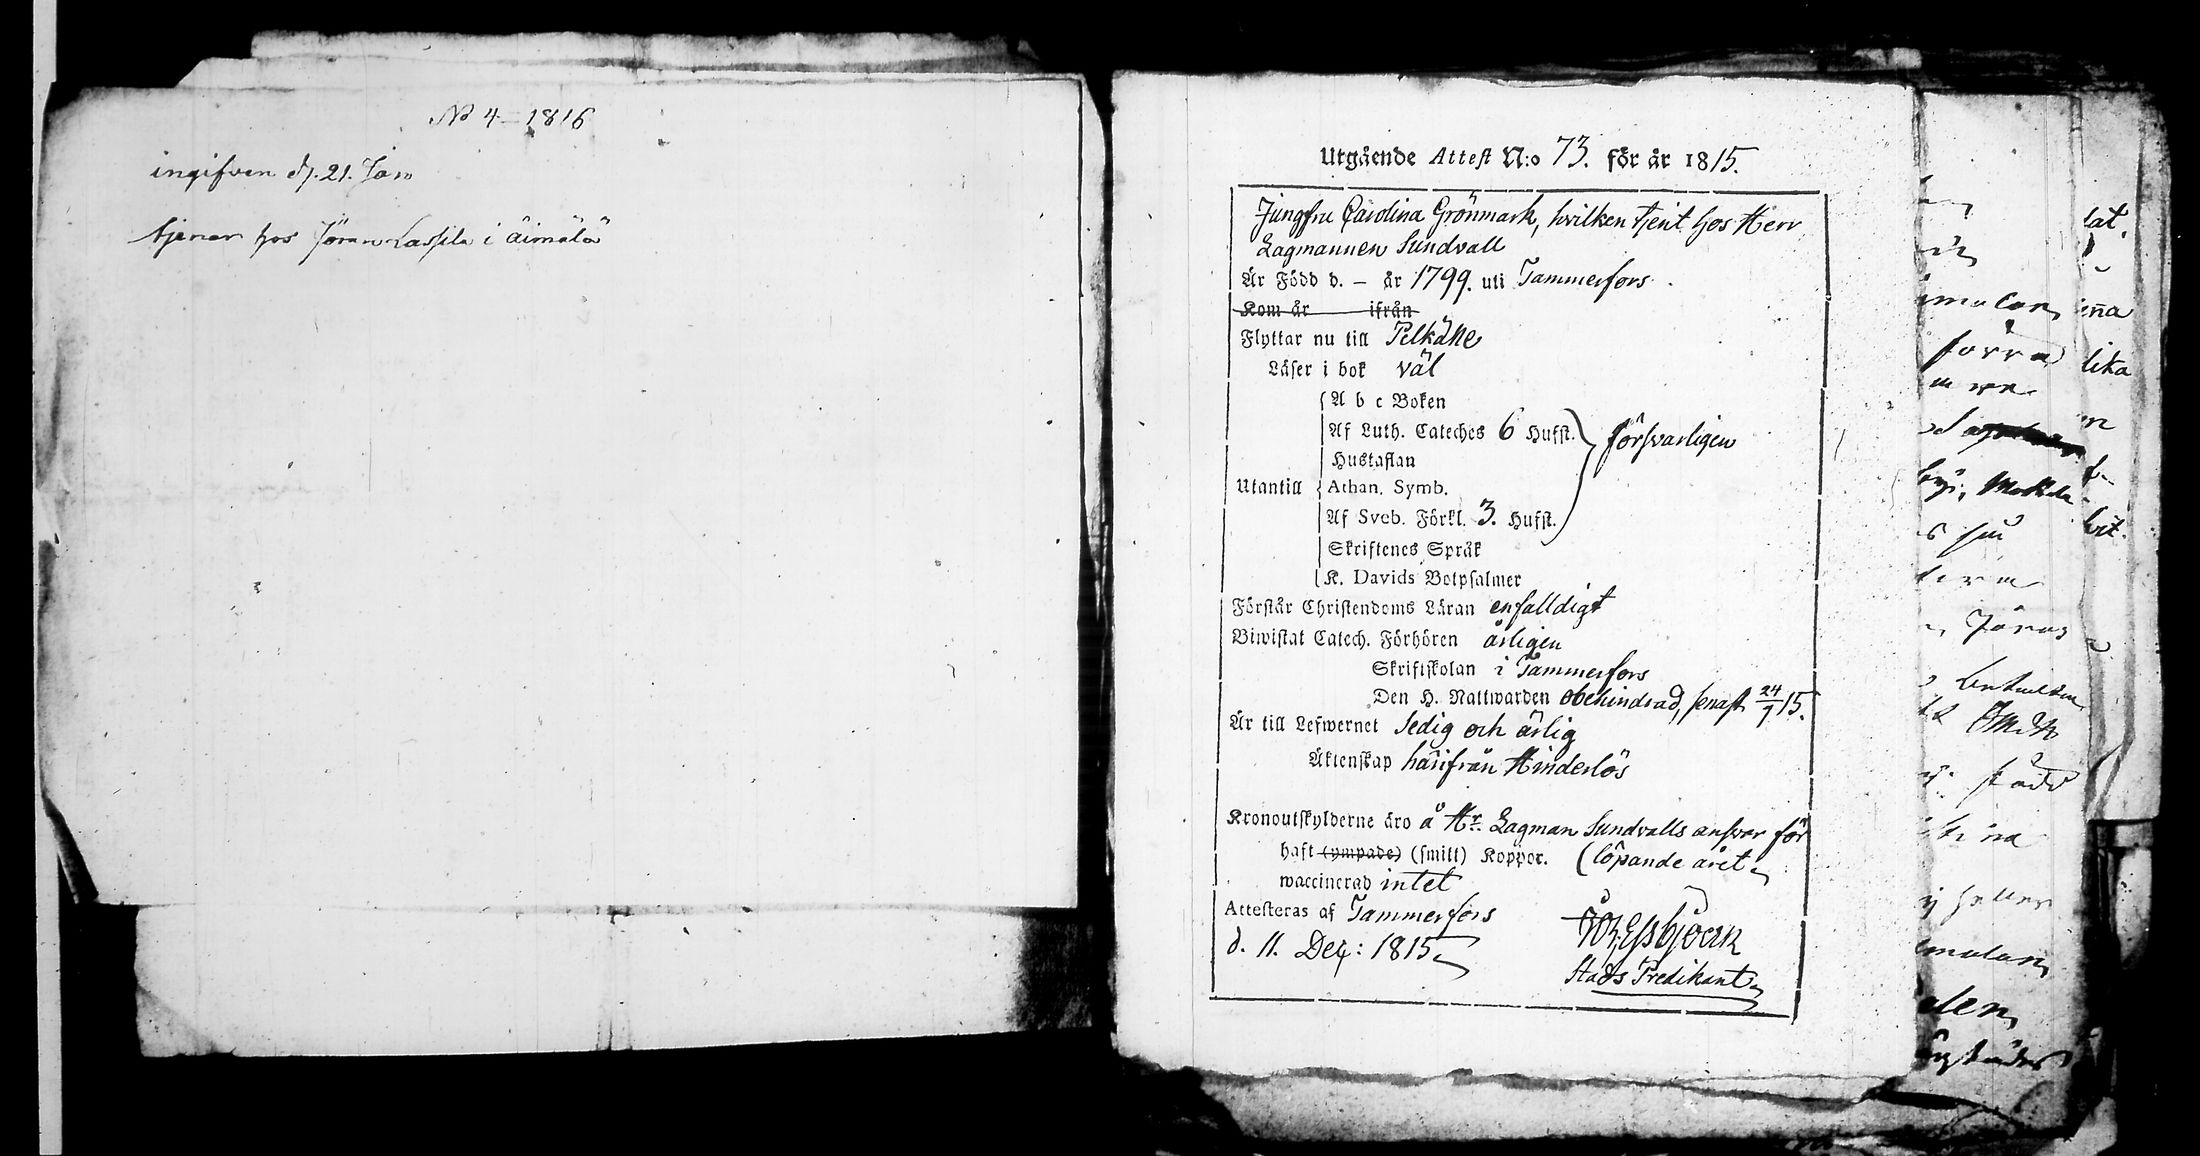 No 4 - 1816
ingifven d. 21. Jan
tjenar hos Jöran Lassila i Äimälä
Utgående Attest N:o 73. för år 1815.
Jungfru Carolina Grönmark, hvilken tjent hos Herr
Lagmannen Sundvall
Är Född d. — år 1799. uti Tammerfors.
Kom år ifrån
Flyttar nu till Pelkäne
Läser i bok väl
A b c Boken
Af Luth. Cateches 6 Hufst. försvarligen
Hustaflan
Utantill Athan. Symb.
Af Sveb. Förkl. 3. Hufst.
Skriftenes Språk
K. Davids Botpsalmer
Förstår Christendoms Läran enfalldigt
Biwistat Catech. Förhören årligen
Skriftskolan i Tammerfors
Den H. Nattwarden obehindrad, senast 24/7 15.
Är till Lefwernet Sedig och ärlig
Äktenskap härifrån Hinderlös
Kronoutskylderne äro å Hr. Lagman Sundvalls ansvar för
haft (ympade) (smitt) Koppor. (löpande året
waccinerad intet
Attesteras af Tammerfors
d. 11. Dec: 1815
Stads Predikant
lat.
ena
förra
lika
m
s
Jöran
den